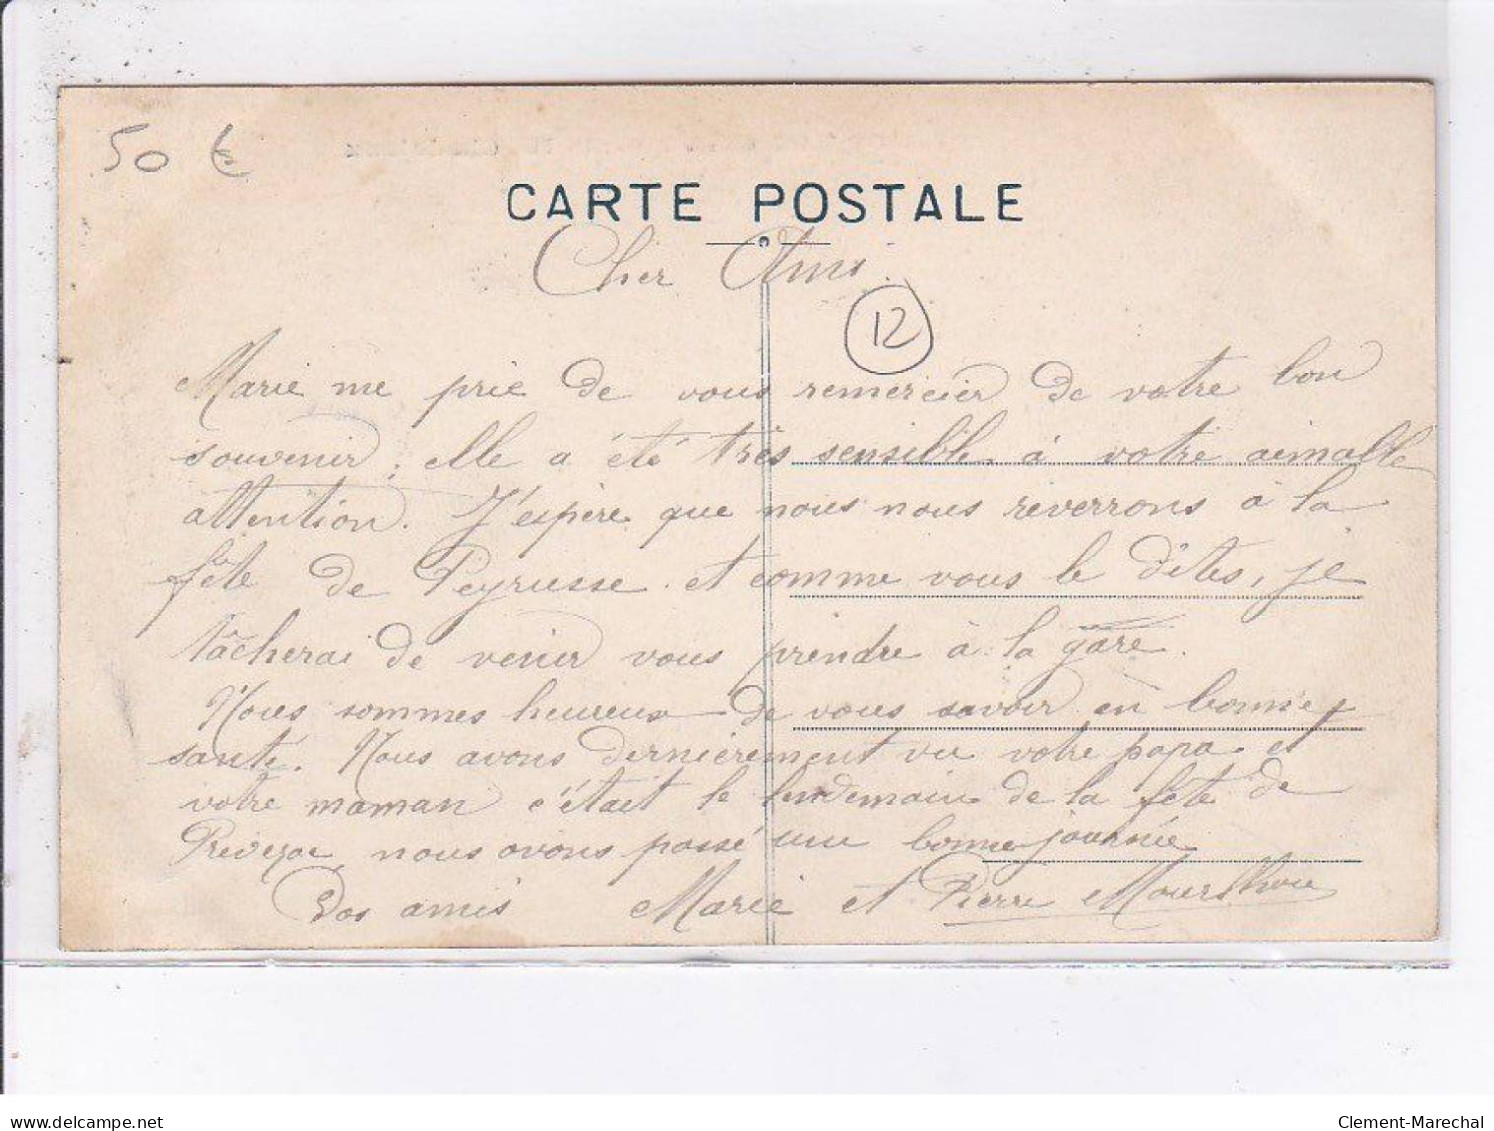 50 €
CARTE POSTALE
Cher Ami
12
Marie me prie de vous remercier de votre bon
souvenir, elle a été très sensible à votre aimable
attention. J'espère que nous nous reverrons à la
fête de Peyrusse et comme vous le dites, je
tâcherai de venir vous prendre à la gare.
Nous sommes heureux de vous savoir en bonne
santé. Nous avons dernièrement vu votre papa et
votre maman c'était le lendemain de la fête de
nous avons passé une bonne journée
Vos amis Marie et Pierre
delcampe.net
Clement-Marechal